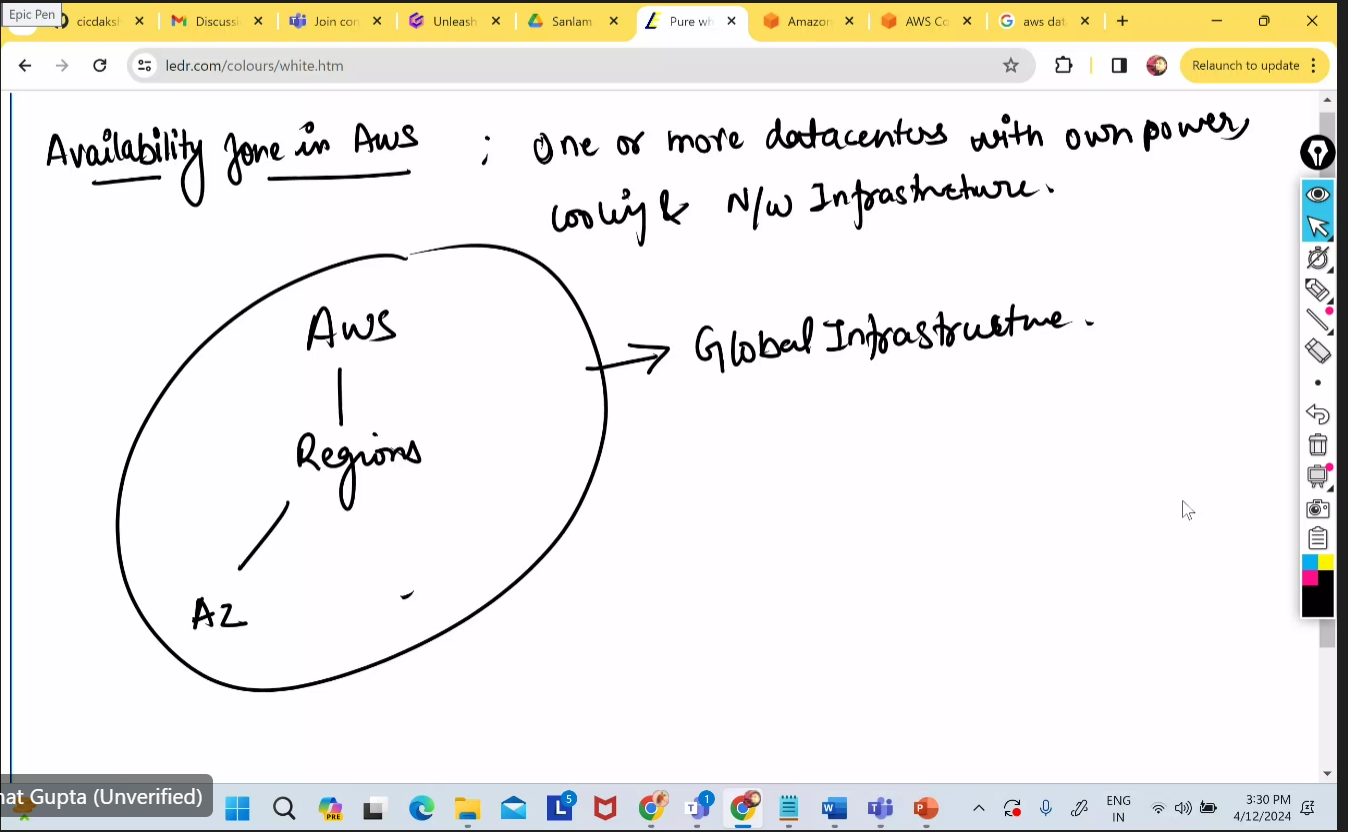 Epic Pen
cicdaksh
Discussi
Join con
Unleash
Sanlam
Pure wh
Amazon
AWS Co
aws dat
ledr.com/colours/white.htm
Relaunch to update
Availability Zone in Aws ; One or more datacenters with own power,
cooling & N/w Infrastructure.
Aws
Global Infrastructure.
Regions
AZ
hat Gupta (Unverified)
PRE
L
5
1
ENG
IN
3:30 PM
4/12/2024